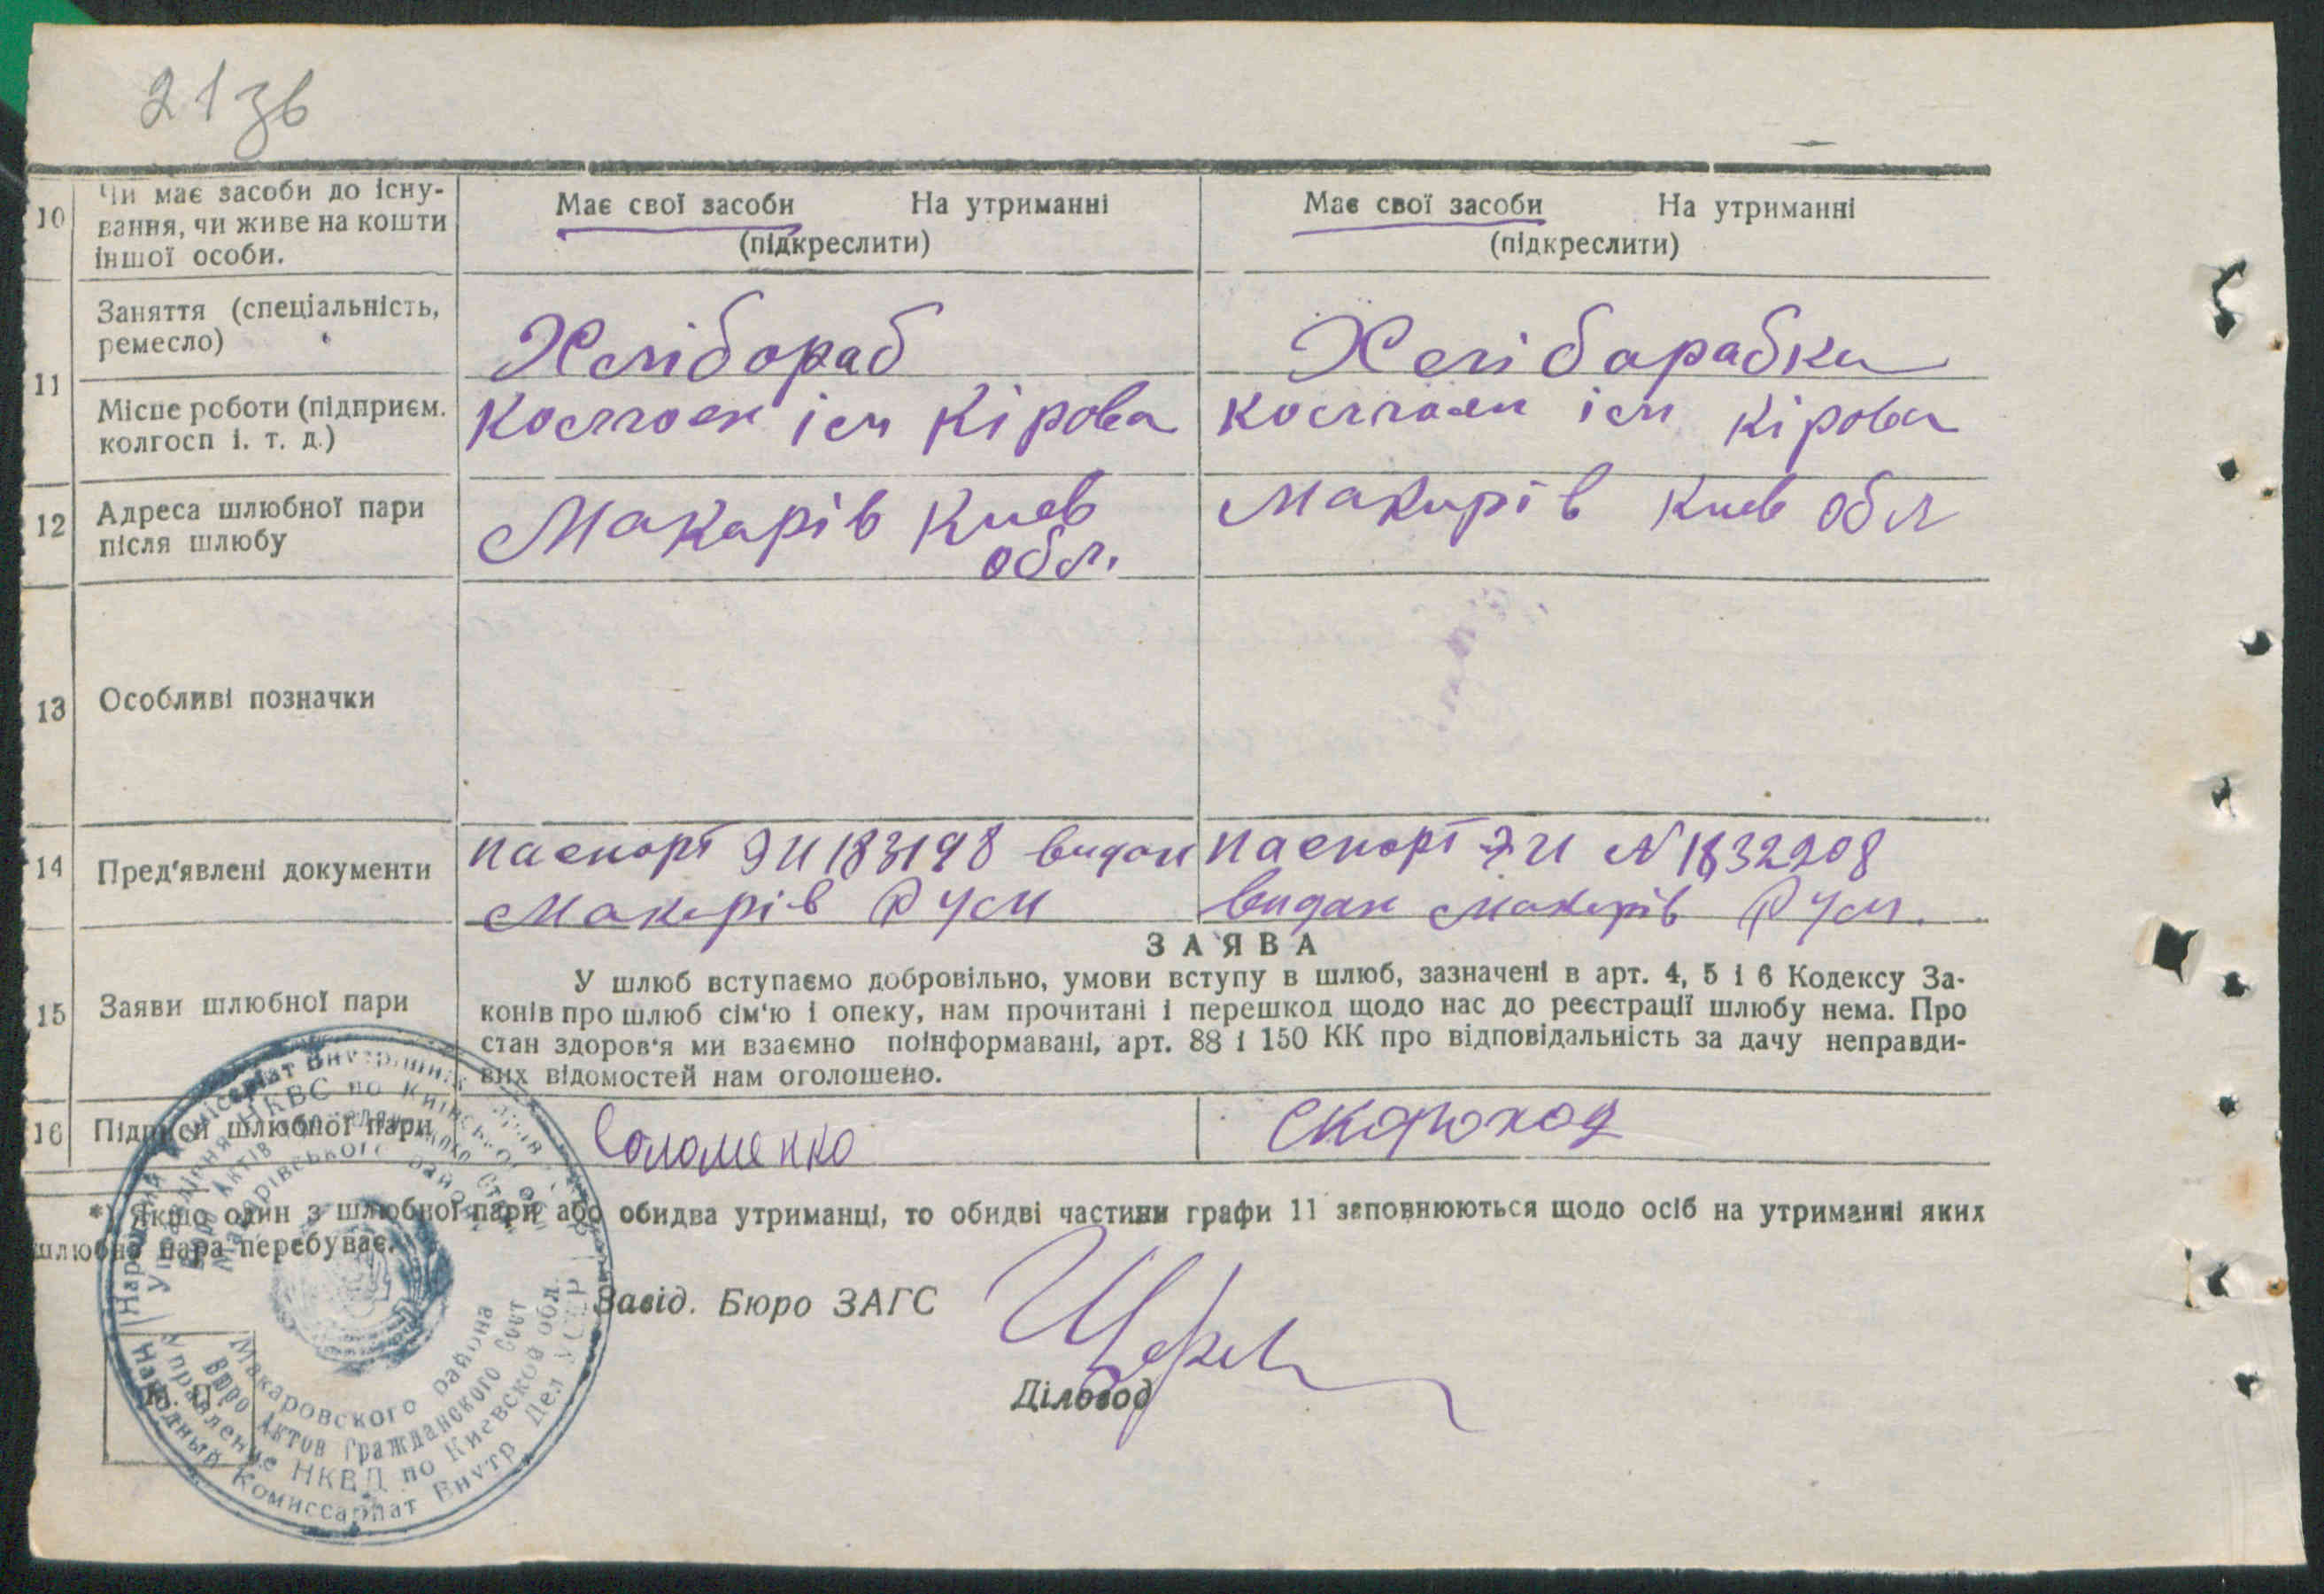 21 зв
10 Чи має засоби до існу-
вання, чи живе на кошти
іншої особи.
Має свої засоби На утриманні
(підкреслити)
Має свої засоби На утриманні
(підкреслити)
11
Заняття (спеціальність,
ремесло)
Хлібораб
Хлібарабка
Місце роботи (підприєм.
колгосп і. т. д.)
Колгосп ім Кірова
Колгосп ім Кірова
12 Адреса шлюбної пари
після шлюбу
Макарів Киев
обл.
Макарів Киев обл
13 Особливі позначки
14 Пред'явлені документи
паспорт ЭИ 183198 видан
Макарів Р УСМ
паспорт ЭИ № 1832208
видан Макарів Р УСМ.
15 Заяви шлюбної пари
ЗАЯВА
У шлюб вступаємо добровільно, умови вступу в шлюб, зазначені в арт. 4, 5 і 6 Кодексу За-
конів про шлюб сім'ю і опеку, нам прочитані і перешкод щодо нас до реєстрації шлюбу нема. Про
стан здоров'я ми взаємно поінформавані, арт. 88 і 150 КК про відповідальність за дачу неправди-
вих відомостей нам оголошено.
16 Підписи шлюбної пари
Соломенко
Скороход
*) Якщо один з шлюбної пари або обидва утриманці, то обидві частини графи 11 заповнюються щодо осіб на утриманні яких
шлюбна пара перебуває.
Завід. Бюро ЗАГС
Діловод
М. П.
Народный Комиссариат Внутр Дел УССР
Управление НКВД по Киевской обл.
Бюро Актов Гражданского Сост
Макаровского района